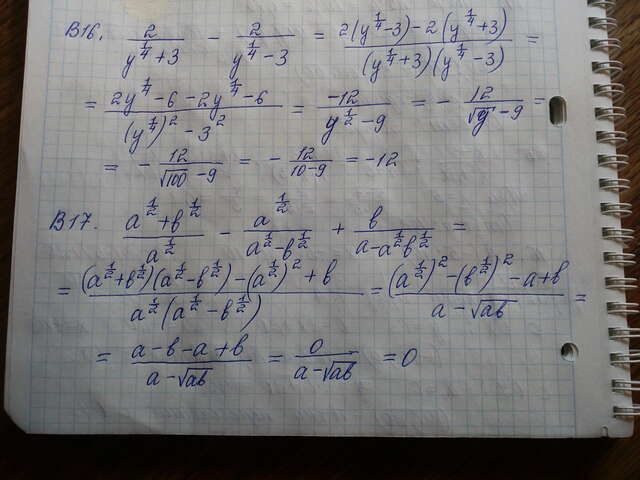 В16. 2/(y^(1/4)+3) - 2/(y^(1/4)-3) = (2(y^(1/4)-3)-2(y^(1/4)+3))/((y^(1/4)+3)(y^(1/4)-3)) =
= (2y^(1/4)-6-2y^(1/4)-6)/((y^(1/4))^2-3^2) = -12/(y^(1/2)-9) = - 12/(√y-9) =
= - 12/(√100-9) = - 12/(10-9) = -12
В17. (a^(1/2)+b^(1/2))/a^(1/2) - a^(1/2)/(a^(1/2)-b^(1/2)) + b/(a-a^(1/2)b^(1/2)) =
= ((a^(1/2)+b^(1/2))(a^(1/2)-b^(1/2))-(a^(1/2))^2+b)/(a^(1/2)(a^(1/2)-b^(1/2))) = ((a^(1/2))^2-(b^(1/2))^2-a+b)/(a-√ab) =
= (a-b-a+b)/(a-√ab) = 0/(a-√ab) = 0